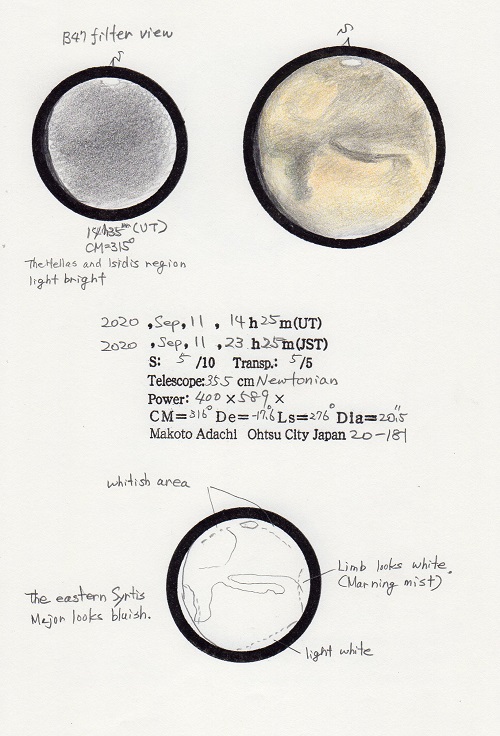 B47 filter view
S
S
14h35m(UT)
CM=315°
The Hellas and Isidis region
light bright
2020 , Sep, 11 , 14 h 25 m(UT)
2020 , Sep, 11 , 23 h 25 m(JST)
S: 5 /10 Transp.: 5/5
Telescope: 35.5 cm Newtonian
Power: 400 × 589 ×
CM=316° De=-17.6° Ls=276° Dia=20.5"
Makoto Adachi Ohtsu City Japan 20-181
whitish area
Limb looks white.
(Marning mist)
The eastern Syrtis
Major looks bluish.
light white